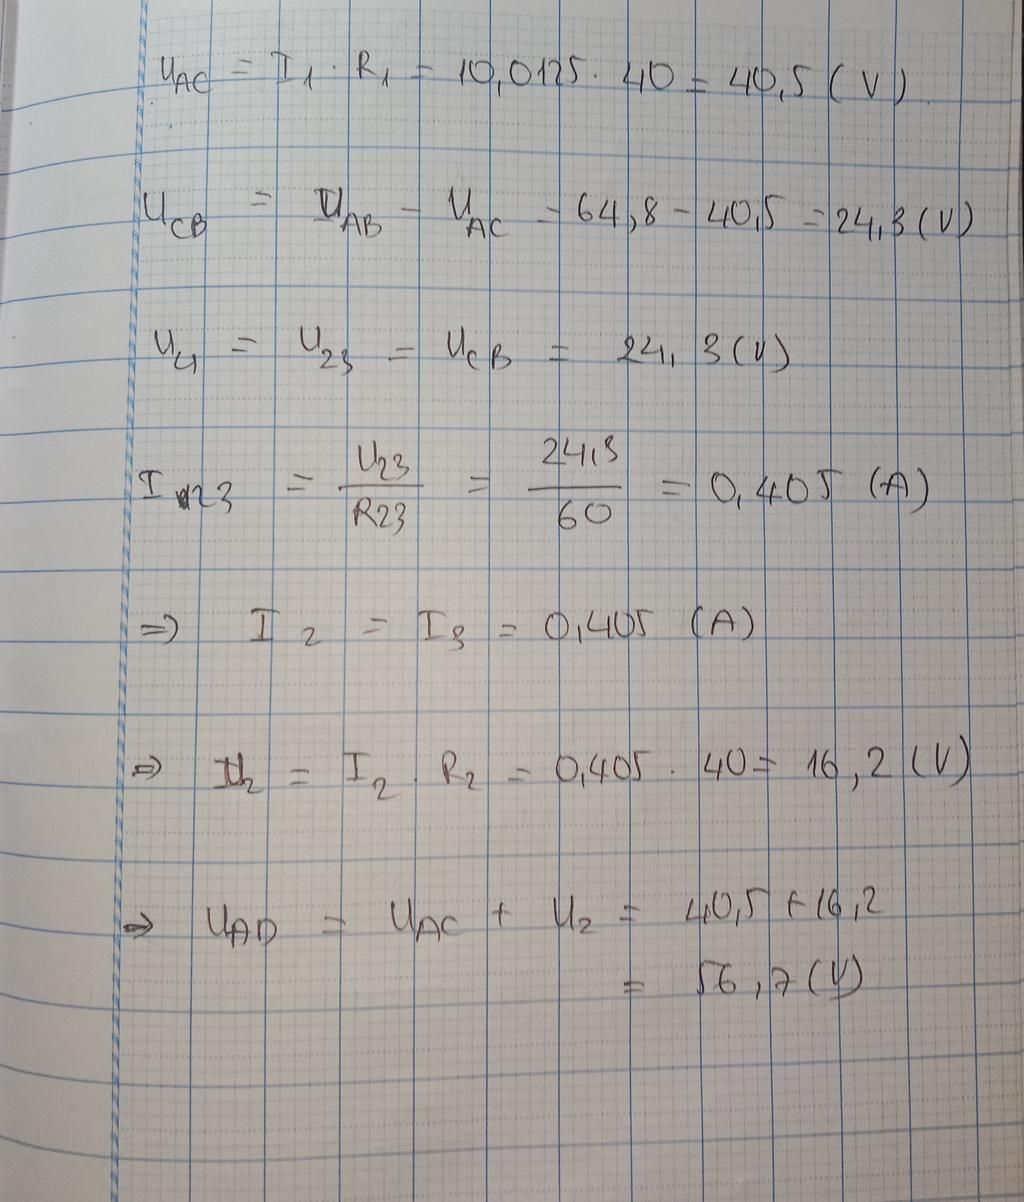 U_AC = I_1 . R_1 = 10,0125 . 40 = 40,5 (V)
U_CB = U_AB - U_AC = 64,8 - 40,5 = 24,3 (V)
U_4 = U_23 = U_CB = 24,3 (V)
I_23 = U_23/R_23 = 24,3/60 = 0,405 (A)
=> I_2 = I_3 = 0,405 (A)
=> U_2 = I_2 . R_2 = 0,405 . 40 = 16,2 (V)
=> U_AD = U_AC + U_2 = 40,5 + 16,2
= 56,7 (V)